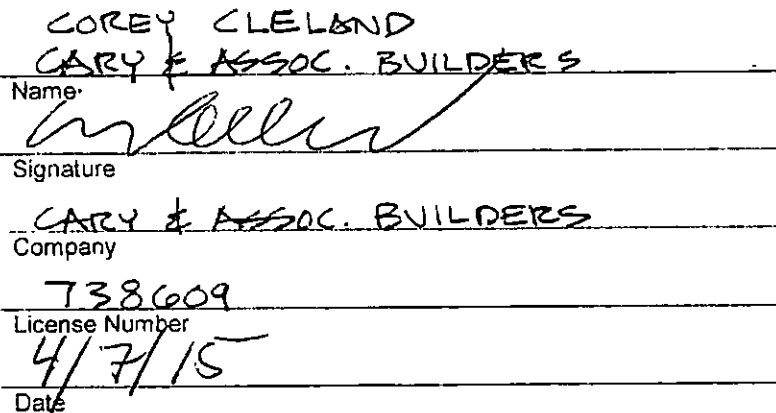 COREY CLELAND
CARY & ASSOC. BUILDERS
Name
Signature
CARY & ASSOC. BUILDERS
Company
738609
License Number
4/7/15
Date